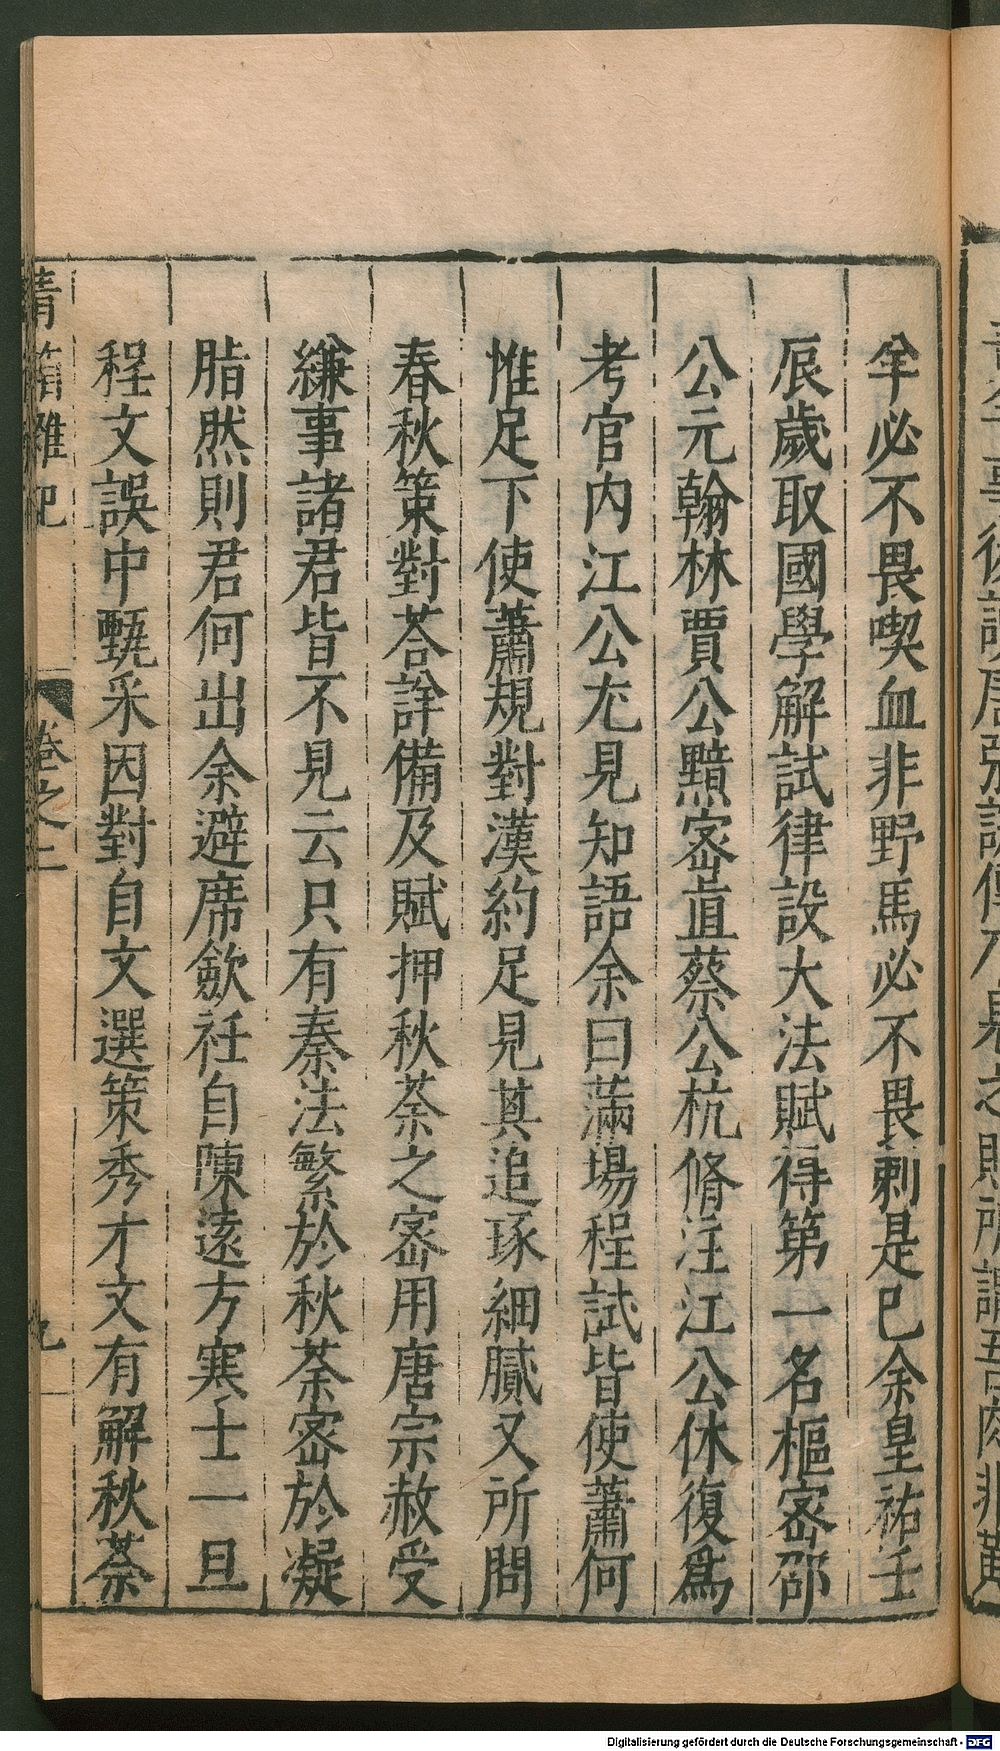 羊必不畏喫血非野馬必不畏剌是巳余皇祐壬
辰歲取國學解試律設大法賦得第一名樞宻邵
公元翰林賈公黯宻直蔡公杭脩注江公休復爲
考官内江公尤見知語余曰滿場程試皆使蕭何
惟足下使蕭規對漢約足見其追琢細膩又所問
春秋策對荅詳備及賦押秋荼之宻用唐宗赦受
縑事諸君皆不見云只有秦法繁於秋荼宻於凝
脂然則君何出余避席歛衽自陳遠方寒士一旦
程文誤中甄采因對自文選策秀才文有解秋荼
青箱雜記
卷之二
九
Digitalisierung gefördert durch die Deutsche Forschungsgemeinschaft - DFG